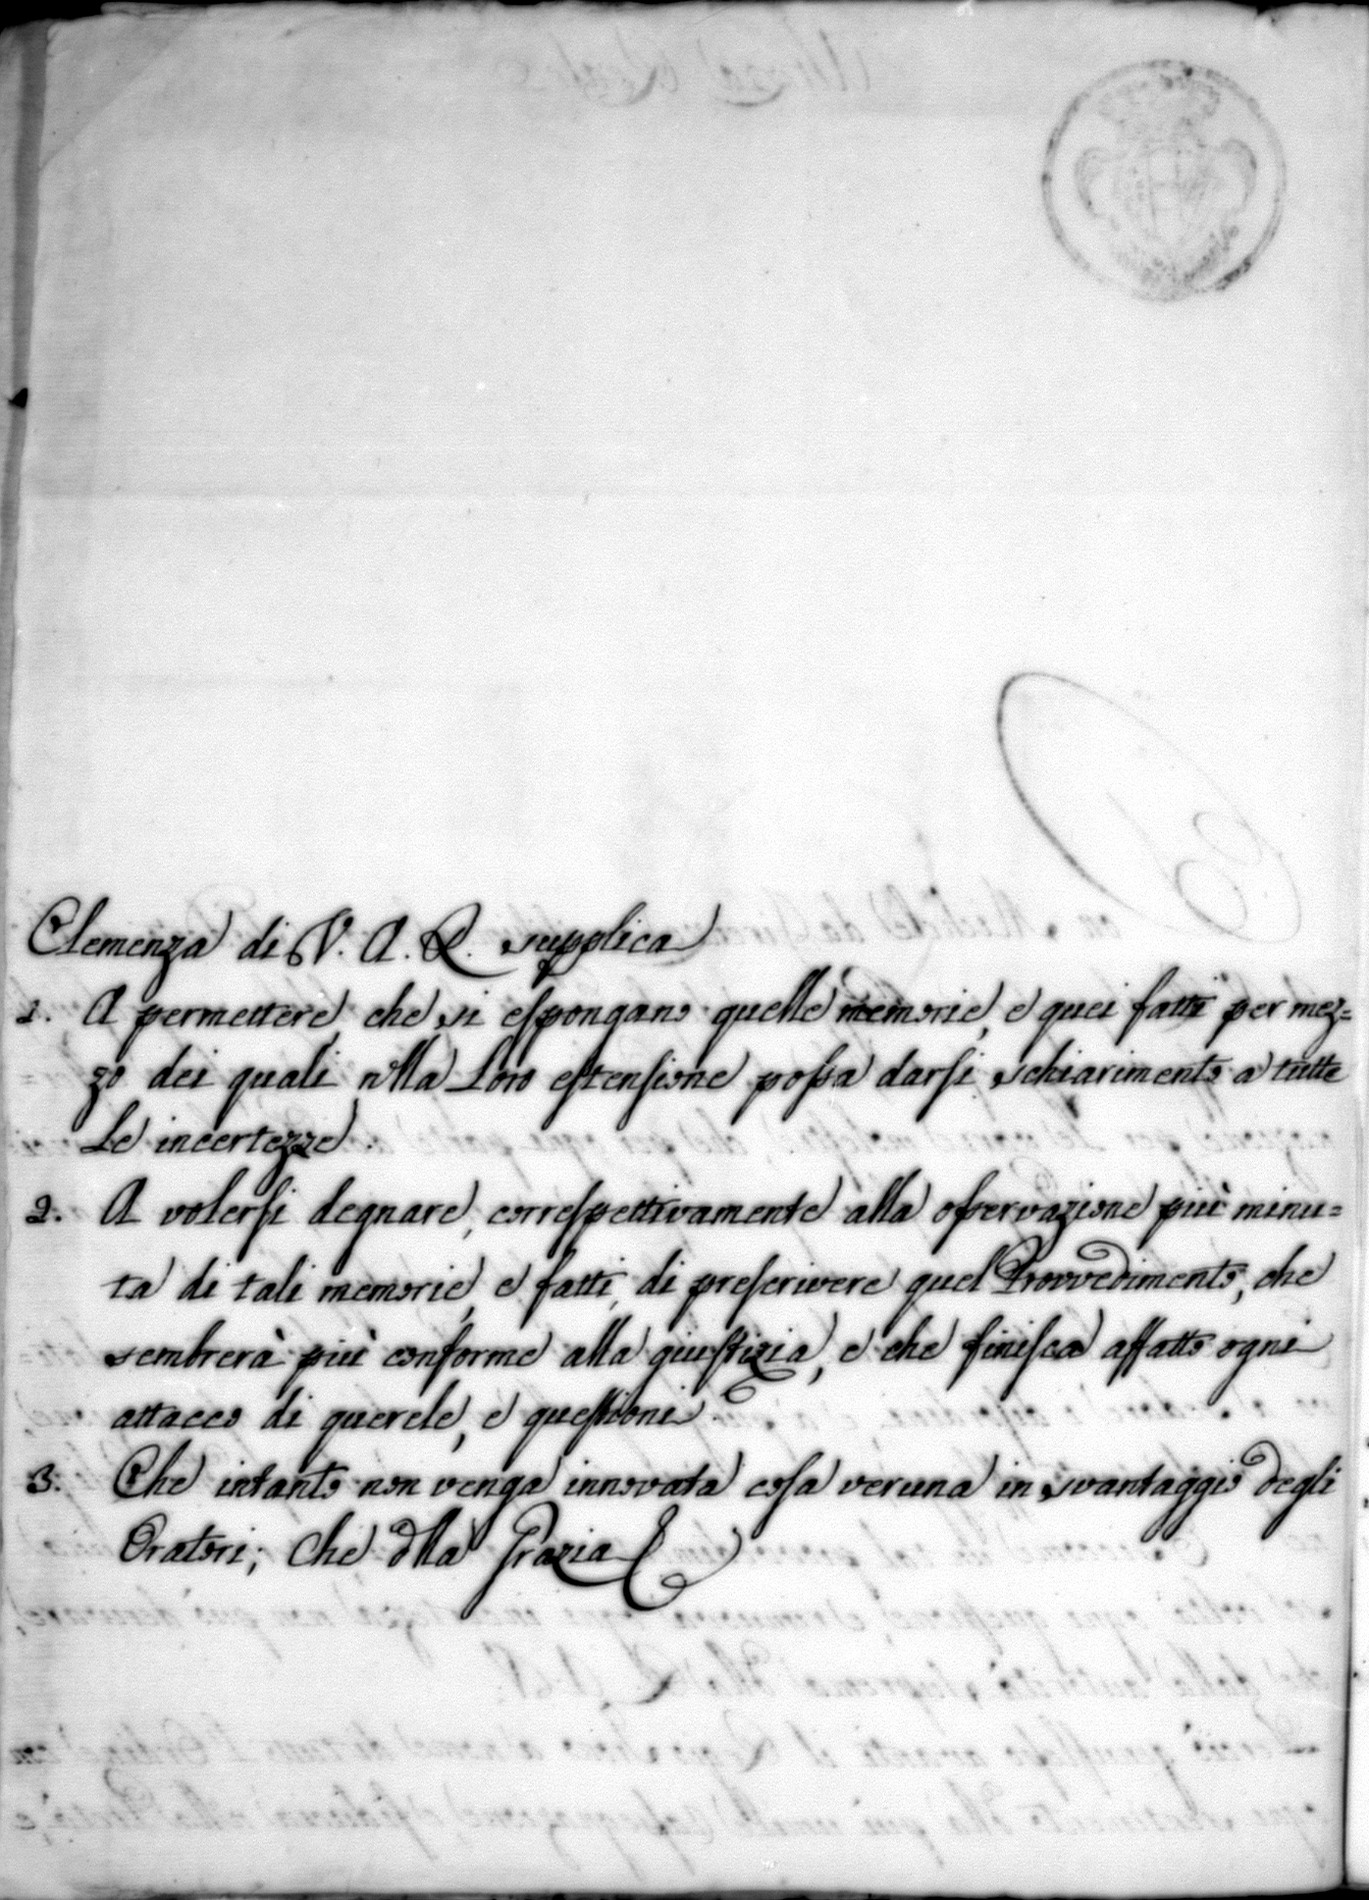 Clemenza di V. A. R. supplica
1. A permettere che si espongano quelle memorie, e quei fatti per mez=
zo dei quali nella Loro estensione possa darsi schiarimento a tutte
Le incertezze.
2. A volersi degnare, correspettivamente alla osservazione più minu=
ta di tali memorie, e fatti, di prescrivere quel Provvedimento, che
sembrerà più conforme alla giustizia, e che finisca affatto ogni
attacco di querele, e questioni.
3. Che intanto non venga innovata cosa veruna in svantaggio degli
Oratori; Che della Grazia